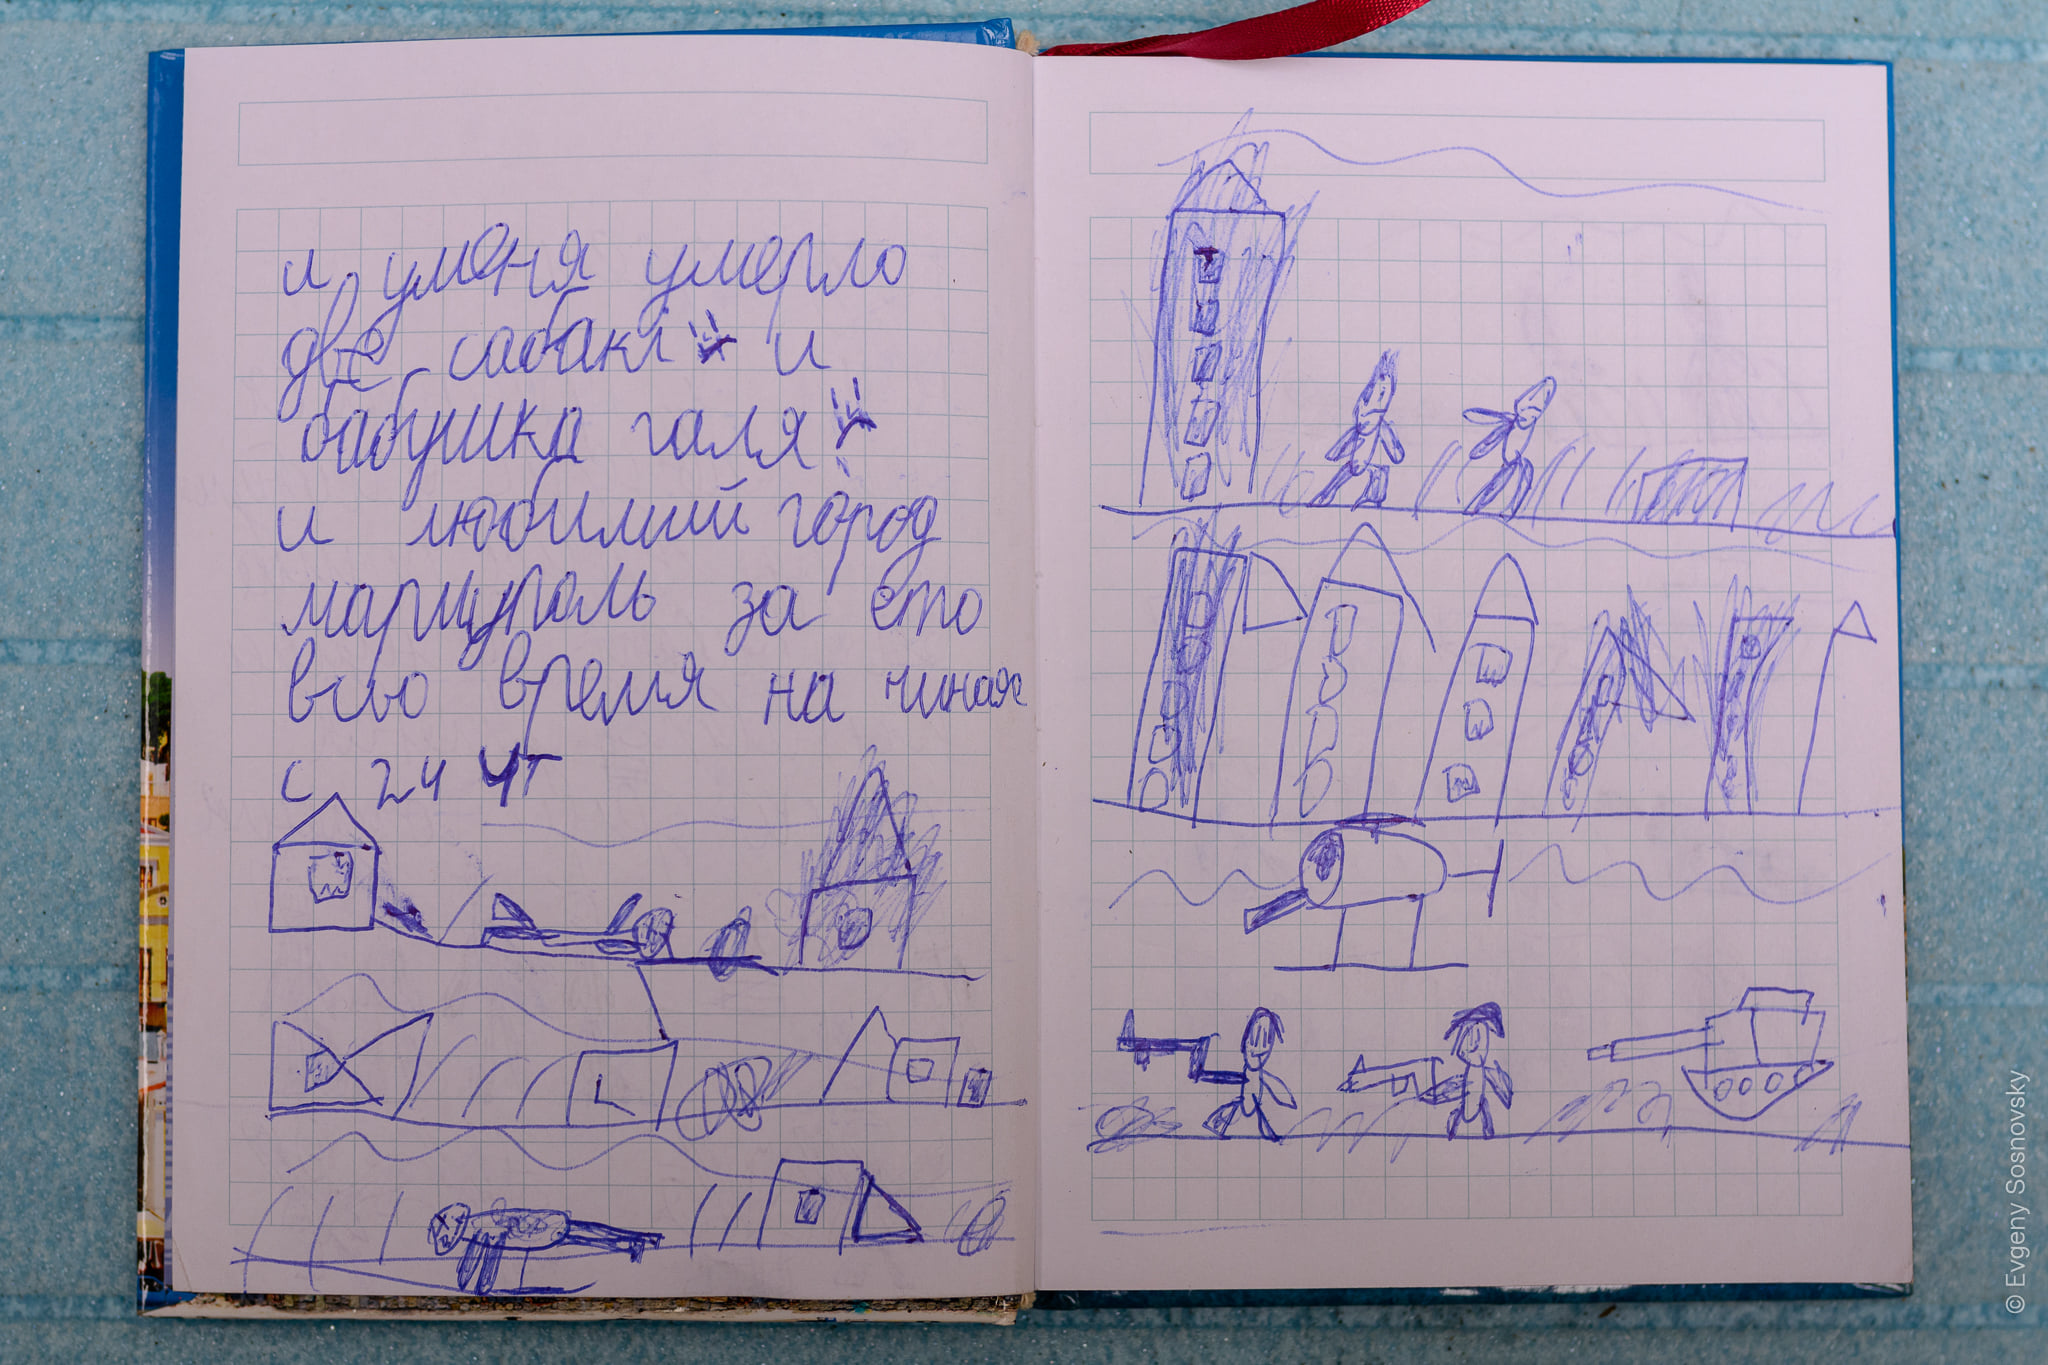 и уменя умерло
две сабакі и
бабушка галя
и любимий город
марıуполь за ето
всю время на чиная
с 24 чт
© Evgeny Sosnovsky